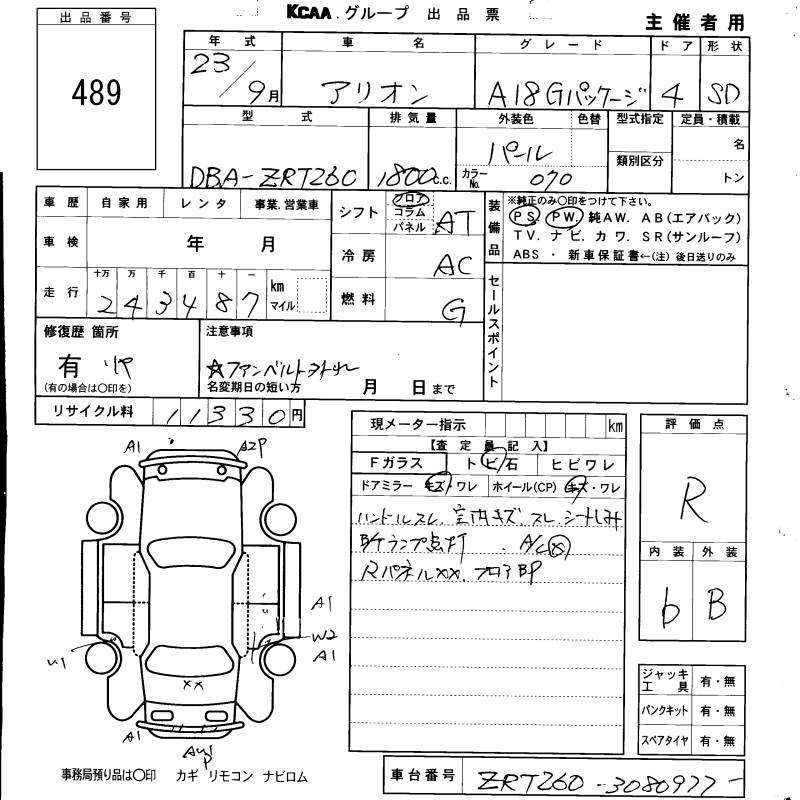 出品番号
489
KCAA グループ 出品票
主催者用
年式 車名 グレード ドア 形状
23/9月 アリオン A18Gパッケージ 4 SD
型式 排気量 外装色 色替 型式指定 定員・積載
パール 名
類別区分
DBA-ZRT260 1800c.c. カラーNo. 070 トン
車歴 自家用 レンタ 事業.営業車
シフト フロア コラム パネル AT
装備品
※純正のみ〇印をつけて下さい。
PS. PW. 純AW. AB(エアバック)
TV. ナビ. カワ. SR(サンルーフ)
ABS ・ 新車保証書←(注) 後日送りのみ
車検 年 月
冷房 AC
走行 十万 万 千 百 十 一
243487 km マイル
燃料 G
セールスポイント
修復歴 箇所
有 リヤ
(有の場合は〇印を)
注意事項
☆ファンベルトヨゴレ
名変期日の短い方 月 日まで
リサイクル料 11330円
現メーター指示 km
【査定員記入】
Fガラス トビ石 ヒビワレ
ドアミラー キズ・ワレ ホイール(CP) キズ・ワレ
ハンドルスレ. 室内キズ. スレ. シートしみ
B/Kランプ点灯 . A/C×
Rパネル××. フロアBP
評価点
R
内装 外装
b B
A1 A2P
A1
W2
A1
U1
××
A1
P
ジャッキ工具 有・無
パンクキット 有・無
スペアタイヤ 有・無
事務局預り品は〇印 カギ リモコン ナビロム
車台番号 ZRT260-3080977-